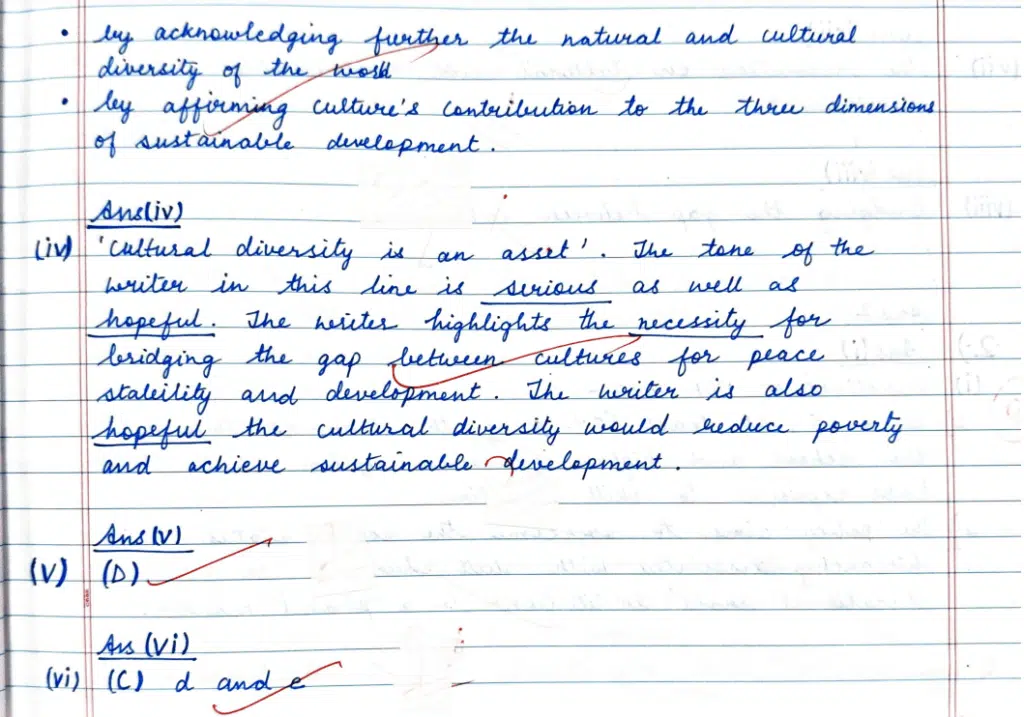 • by acknowledging further the natural and cultural
diversity of the world
• by affirming culture's contribution to the three dimensions
of sustainable development.
Ans(iv)
(iv) 'Cultural diversity is an asset'. The tone of the
writer in this line is serious as well as
hopeful. The writer highlights the necessity for
bridging the gap between cultures for peace
stability and development. The writer is also
hopeful the cultural diversity would reduce poverty
and achieve sustainable development.
Ans (v)
(v) (D)
Ans (vi)
(vi) (C) d and e